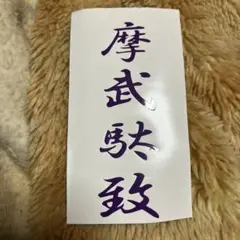 摩武駄致